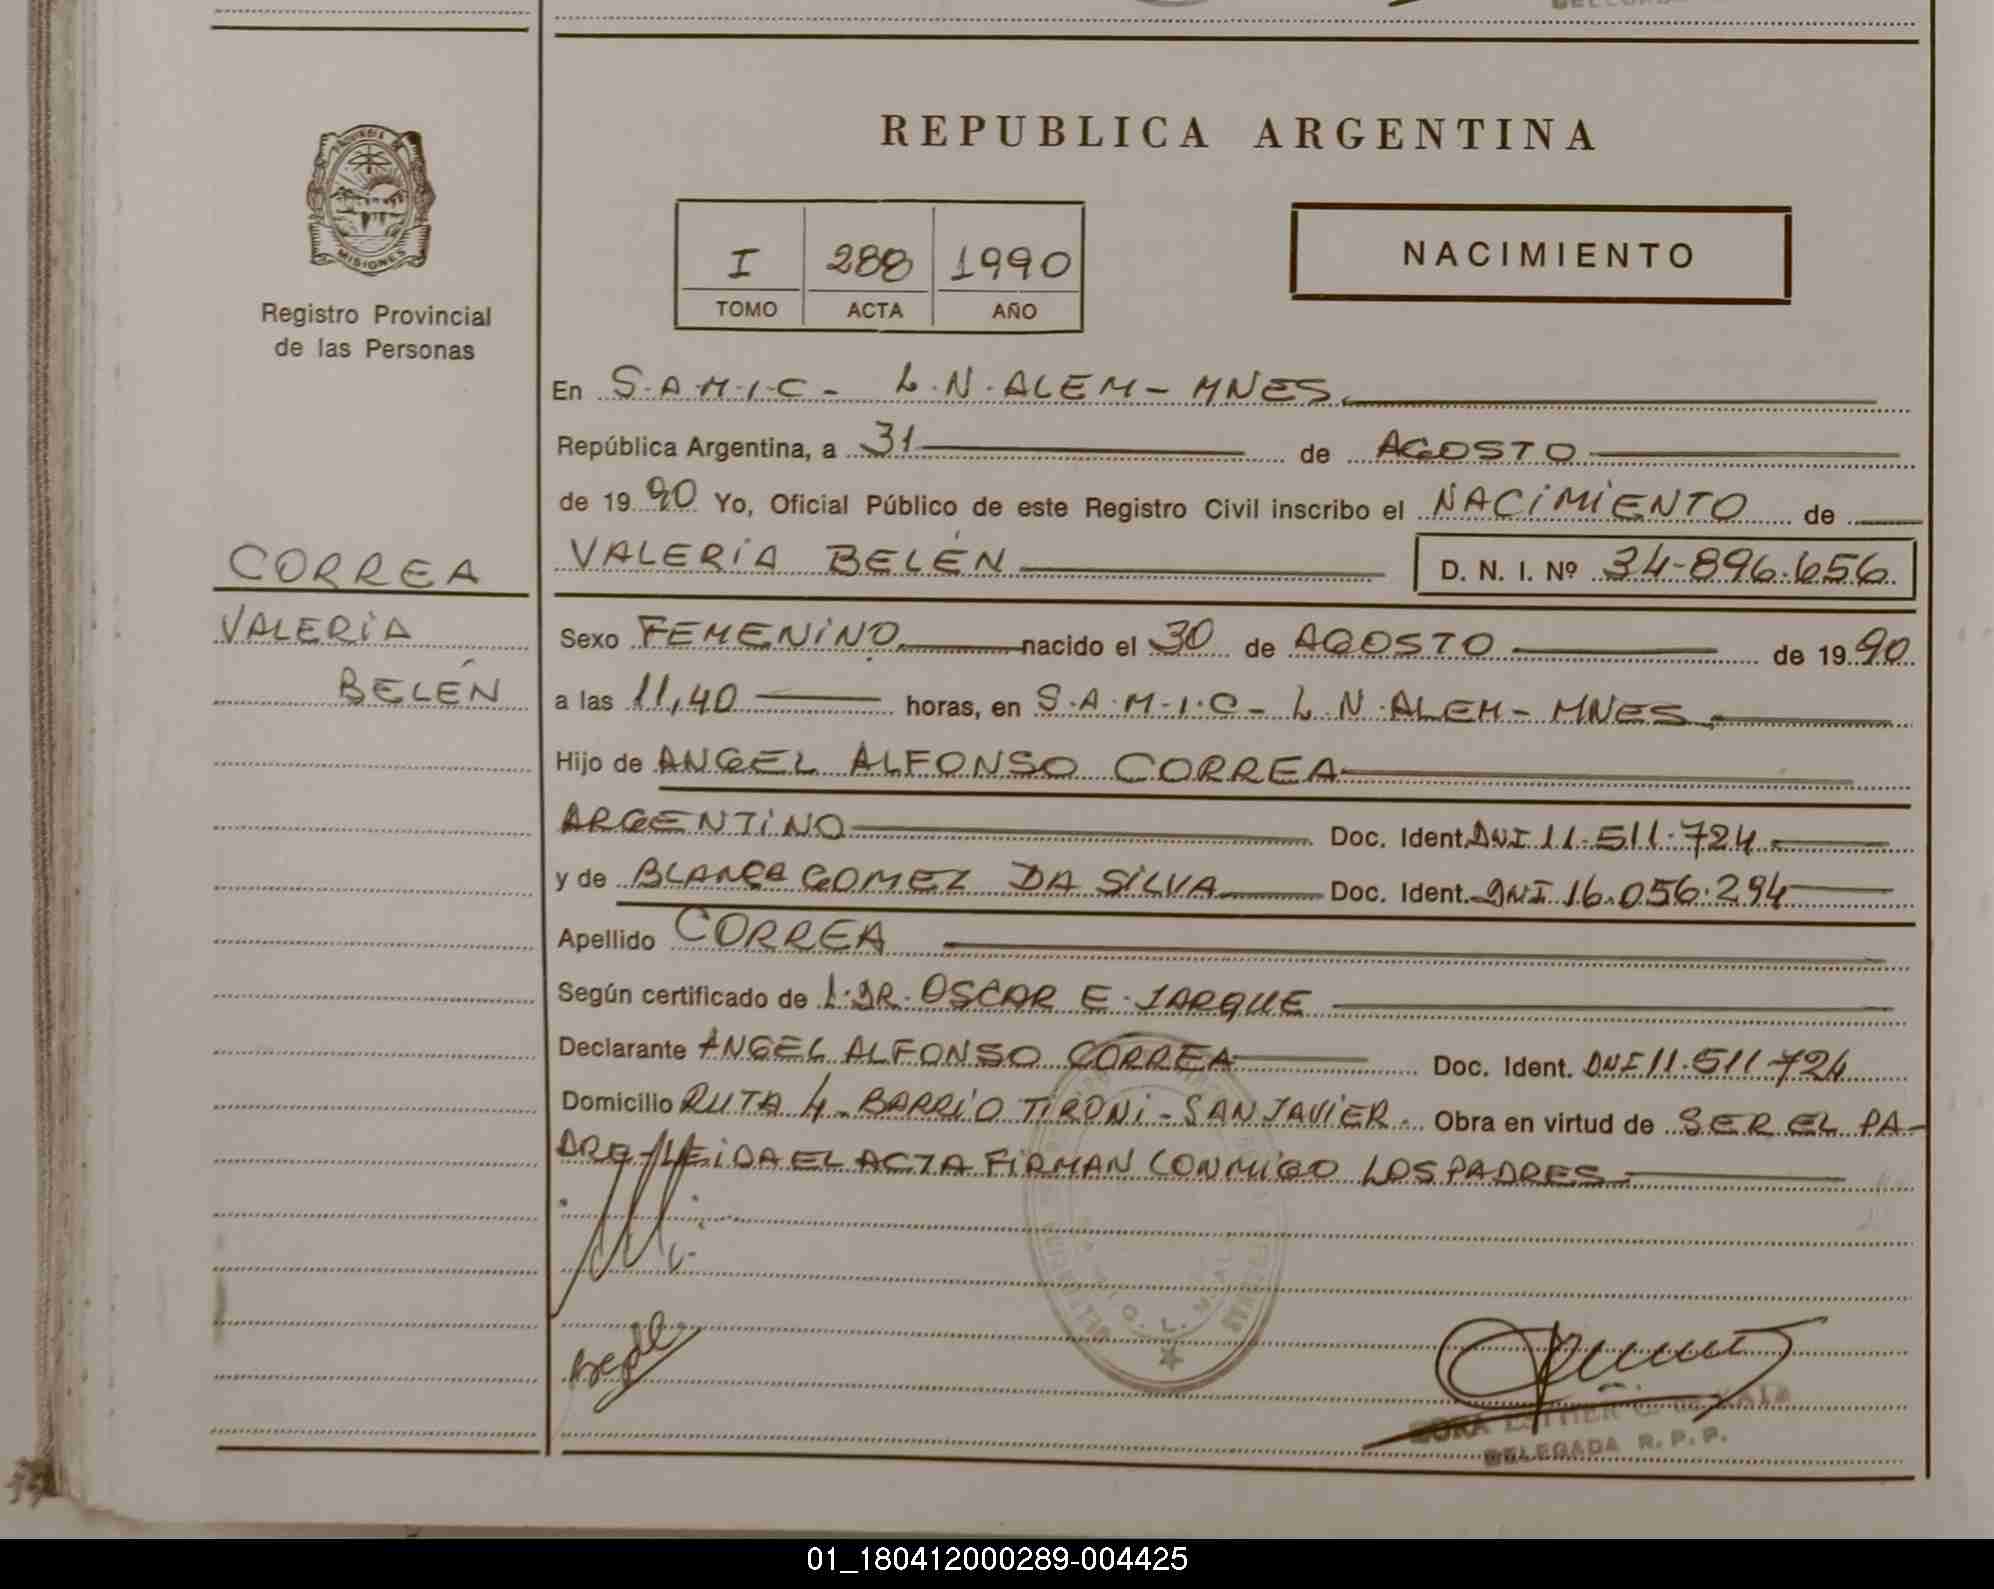 REPUBLICA ARGENTINA
PROVINCIA DE
MISIONES
Registro Provincial
de las Personas
I 288 1990
TOMO ACTA AÑO
NACIMIENTO
En S.A.M.I.C - L.N.ALEM - MNES
República Argentina, a 31 de AGOSTO
de 1990 Yo, Oficial Público de este Registro Civil inscribo el NACIMIENTO de
CORREA
VALERIA BELÉN D. N. I. Nº 34-896.656
VALERIA
BELÉN
Sexo FEMENINO nacido el 30 de AGOSTO de 1990
a las 11,40 horas, en S.A.M.I.C - L.N.ALEM - MNES
Hijo de ANGEL ALFONSO CORREA
ARGENTINO Doc. Ident. DNI 11.511.724
y de BLANCA GOMEZ DA SILVA Doc. Ident. DNI 16.056.294
Apellido CORREA
Según certificado de DR. OSCAR E. JARQUE
Declarante ANGEL ALFONSO CORREA Doc. Ident. DNI 11.511.724
Domicilio RUTA 4 - BARRIO TIRONI - SAN JAVIER. Obra en virtud de SER EL PA-
DRE - LEIDA EL ACTA FIRMAN CONMIGO LOS PADRES
DELEGADA R. P. P.
01_180412000289-004425